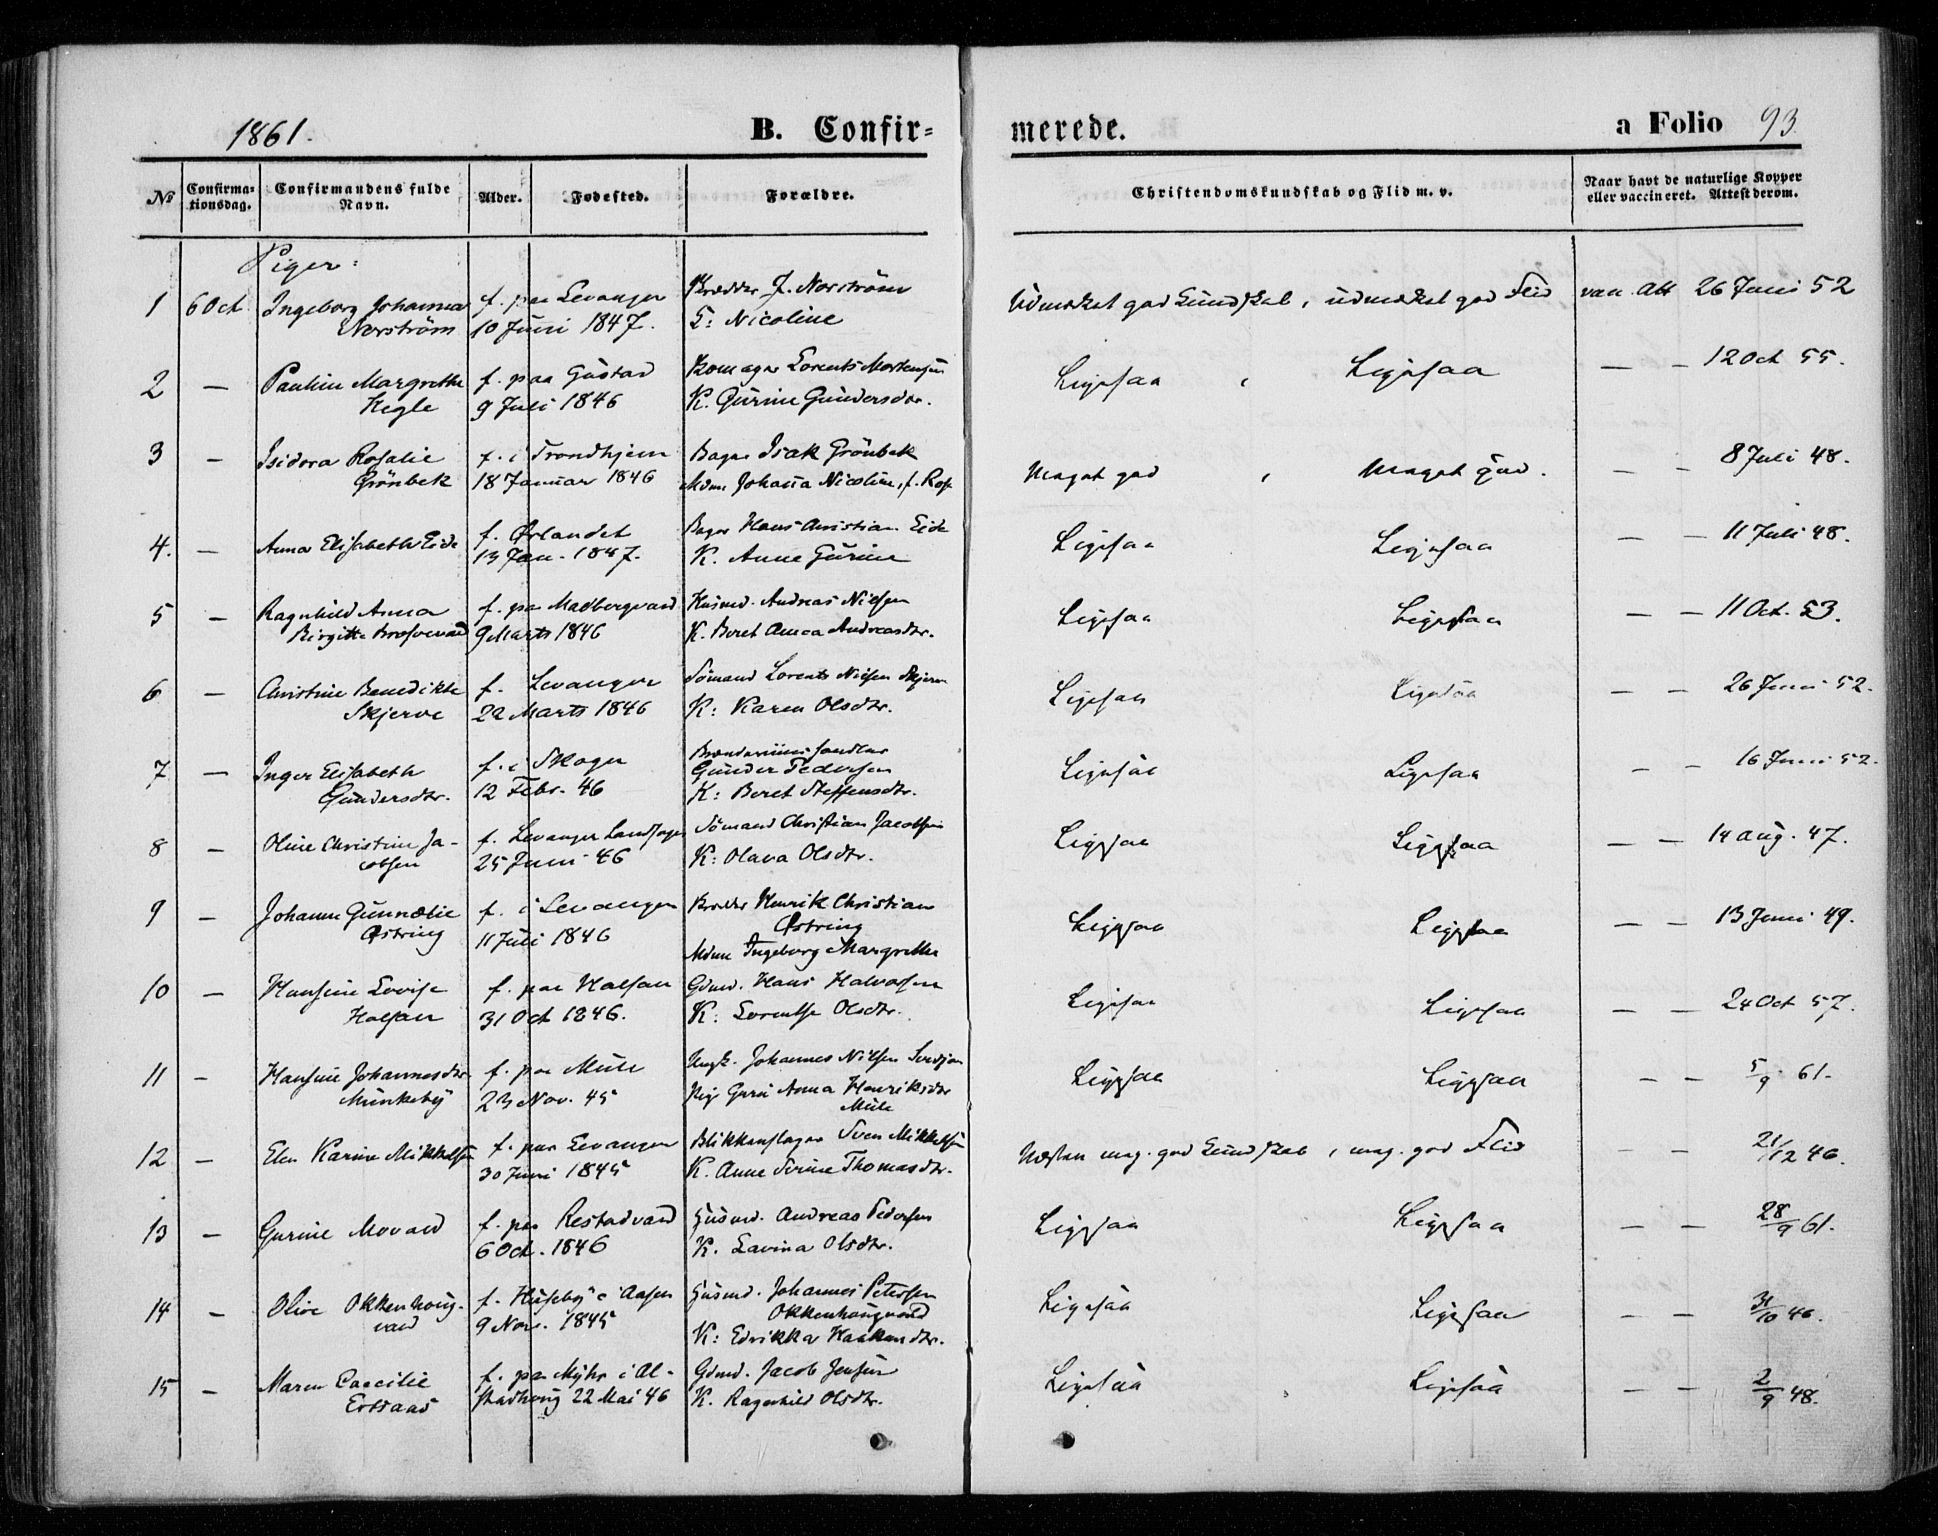 1861. B. Confir= merede. a Folio 93
№ Confirma=tionsdag. Confirmandens fulde Navn. Alder. Fødested. Forældre. Christendomskundskab og Flid m. v. Naar havt de naturlige Kopper eller vaccineret. Attest derom.
Piger:
1 6 Oct Ingeborg Johanna f. paa Levanger J. Norström Udmærket god Kundskab, udmærket god Flid vac. Att 26 Juni 52
Norström 10 Juni 1847. Nicoline
2 — Pauline Margrethe f. paa Gustad Lorents Mortensen Ligesaa , Ligesaa — — 12 Oct 55.
Kegle 9 Juli 1846 K. Gurine Gundersdtr.
3 — Isidora Rosalie f. i Trondhjem Bager Isak Grönbek Meget god , Meget god. — — 8 Juli 48.
Grönbek 18 Januar 1846 Mdme Johanna Nicoline, f.
4. — Anna Elisabeth Eide f. Ørlandet Bager Hans Christian Eide Ligesaa Ligesaa — — 11 Juli 48.
13 Jan. 1847. K. Anne Gurine
5 — Ragnhild Anna f. paa Husmd. Andreas Nielsen Ligesaa Ligesaa — — 11 Oct. 53.
Birgitte 9 Marts 1846 K. Beret Anna Andreasdtr.
6 — Christine Benedikte f. Levanger Sömand Lorents Nielsen Ligesaa Ligesaa — — 26 Juni 52.
Skjerve 22 Marts 1846 K: Karen Olsdtr.
7 — Inger Elisabeth f. i Skogn Gunder Pedersen Ligesaa Ligesaa — — 16 Juni 52.
Gundersdtr. 12 Febr. 46 K: Beret Steffensdtr.
8 — Oline Christine Ja- f. Levanger Sömand Christian Jacobsen Ligesaa Ligesaa — — 14 Aug. 47.
cobsen 25 Juni 46 K: Olava Olsdtr.
9 — Johanne Gunnelie f. i Levanger Henrik Christian Ligesaa Ligesaa — — 13 Juni 49.
Østring 11 Juli 1846 Østring
Mdme Ingeborg Margrethe
10 — Hansine Lovise f. paa Halsan Gdmd. Hans Halvorsen Ligesaa Ligesaa — — 24 Oct 57.
Halsan 31 Oct 1846. K: Lorentse Olsdtr.
11 — Hansine Johannesdtr. f. paa Mule Ungk. Johannes Nilsen Ligesaa Ligesaa — — 5/9 61.
Munkeby 23 Nov. 45 Pig Guru Anna Henriksdtr
Mule
12 — Elen Karine Mikkelsen f. paa Levanger Blikkenslager Sven Mikkelsen Næsten meg. god Kundskab, meg. god Flid — — 21/12 46.
30 Juni 1845 K. Anne Serine Thomasdtr.
13 — Gurine Movald f. paa Restadvald Husmd. Andreas Pedersen Ligesaa Ligesaa — — 28/9 61.
6 Oct. 1846 K. Lavina Olsdtr.
14 — Olive Okkenhoug- f. Huseby i Aasen Husmd. Johannes Petersen Ligesaa Ligesaa — — 31/10 46.
vald 9 Nov. 1845 Okkenhaugvald
K: Edrikka Haakendtr.
15 — Maren Caecilie f. paa Myhr i Al- Gdmd. Jacob Jensen Ligesaa Ligesaa — — 2/9 48.
Ertsaas stadhoug 22 Mai 46 K. Ragnhild Olsdtr.